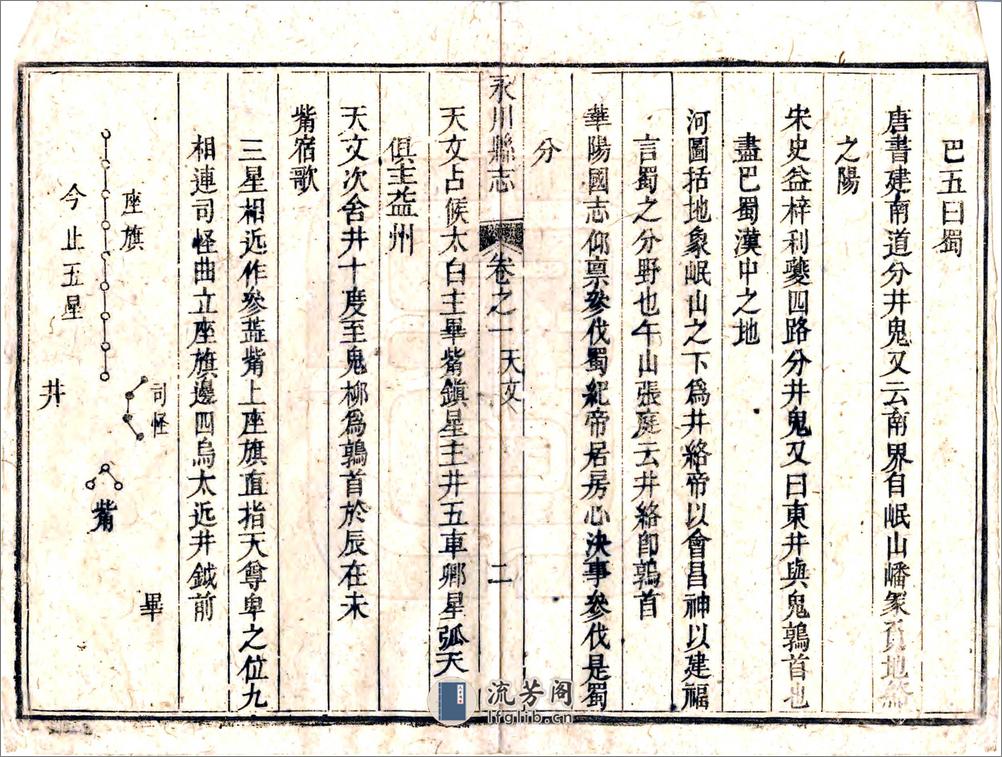 巴五曰蜀
唐書建南道分井鬼又云南界自岷山嶓冢負地絡
之陽
宋史益梓利夔四路分井鬼又曰東井與鬼鶉首也
盡巴蜀漢中之地
河圖括地象岷山之下為井絡帝以會昌神以建福
言蜀之分野也午山張庭云井絡卽鶉首
華陽國志仰禀參伐蜀紀帝居房心決事參伐是蜀
分
永川縣志
卷之一 天文
二
天文占候太白主畢觜鎭星主井五車卿星弧天
俱主益州
天文次舍井十度至鬼柳為鶉首於辰在未
觜宿歌
三星相近作參蕋觜上座旗直指天尊卑之位九
相連司怪曲立座旗邊四烏大近井鉞前
畢
司怪
觜
座旗
今止五星
井
流芳阁
lfglib.cn